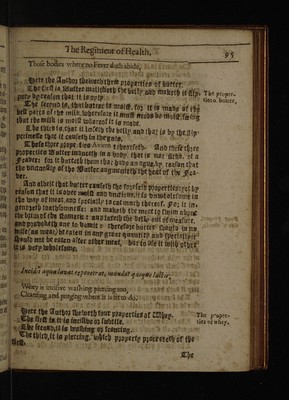 The Regiment of Health,
95
Those bodies where no Fever doth abide,
Here the Author sheweth three properties of butter.
The first is, Butter mollifieth the belly and maketh it slip-
pery by reason that it is oyly.
The proper-
ties to butter,
The second is, that butter is moist, for it is made of the
best parts of the milk, wherefore it must needs be moist, seeing
that the milk is moist whereof it is made.
The third is, that it loseth the belly, and that is by the slip-
perinesse that it causeth in the guts.
These three proper-ties Avicen rehearseth. And these three
properties Butter induceth in a body, that is not sick of a
Feaver: for it hurteth them that have an ague, by reason that
the unctuosity of the Butter augmenteth the heat of the Fea-
ver.
And albeit that butter causeth the foresaid properties; yet by
reason that it is over moist and unctious, it is unwholesome in
the way of meat, and specially to eat much thereof. For it in-
gendreth loathsomnesse: and maketh the meat to swim about
the brim of the stomack: and laxeth the belly out of measure,
and provoketh one to vomit: therefore butter should in no
wise (as meat) be eaten in any great quantity, and specially it
should not be eaten after other meat, but to use it with other
it is very wholesome.
Incidit aqua lavat, penetrat, mundat quoque
Whey is incisive washing piercing too,
Cleansing and purging where it is fit to do.
Here the Author sheweth four properties of Whey.
The proper-
ties of whey.
The first is, it is incisive or subtile.
The second, it is washing or scouring.
The third, it is piercing, which property proceedeth of the
first.
The